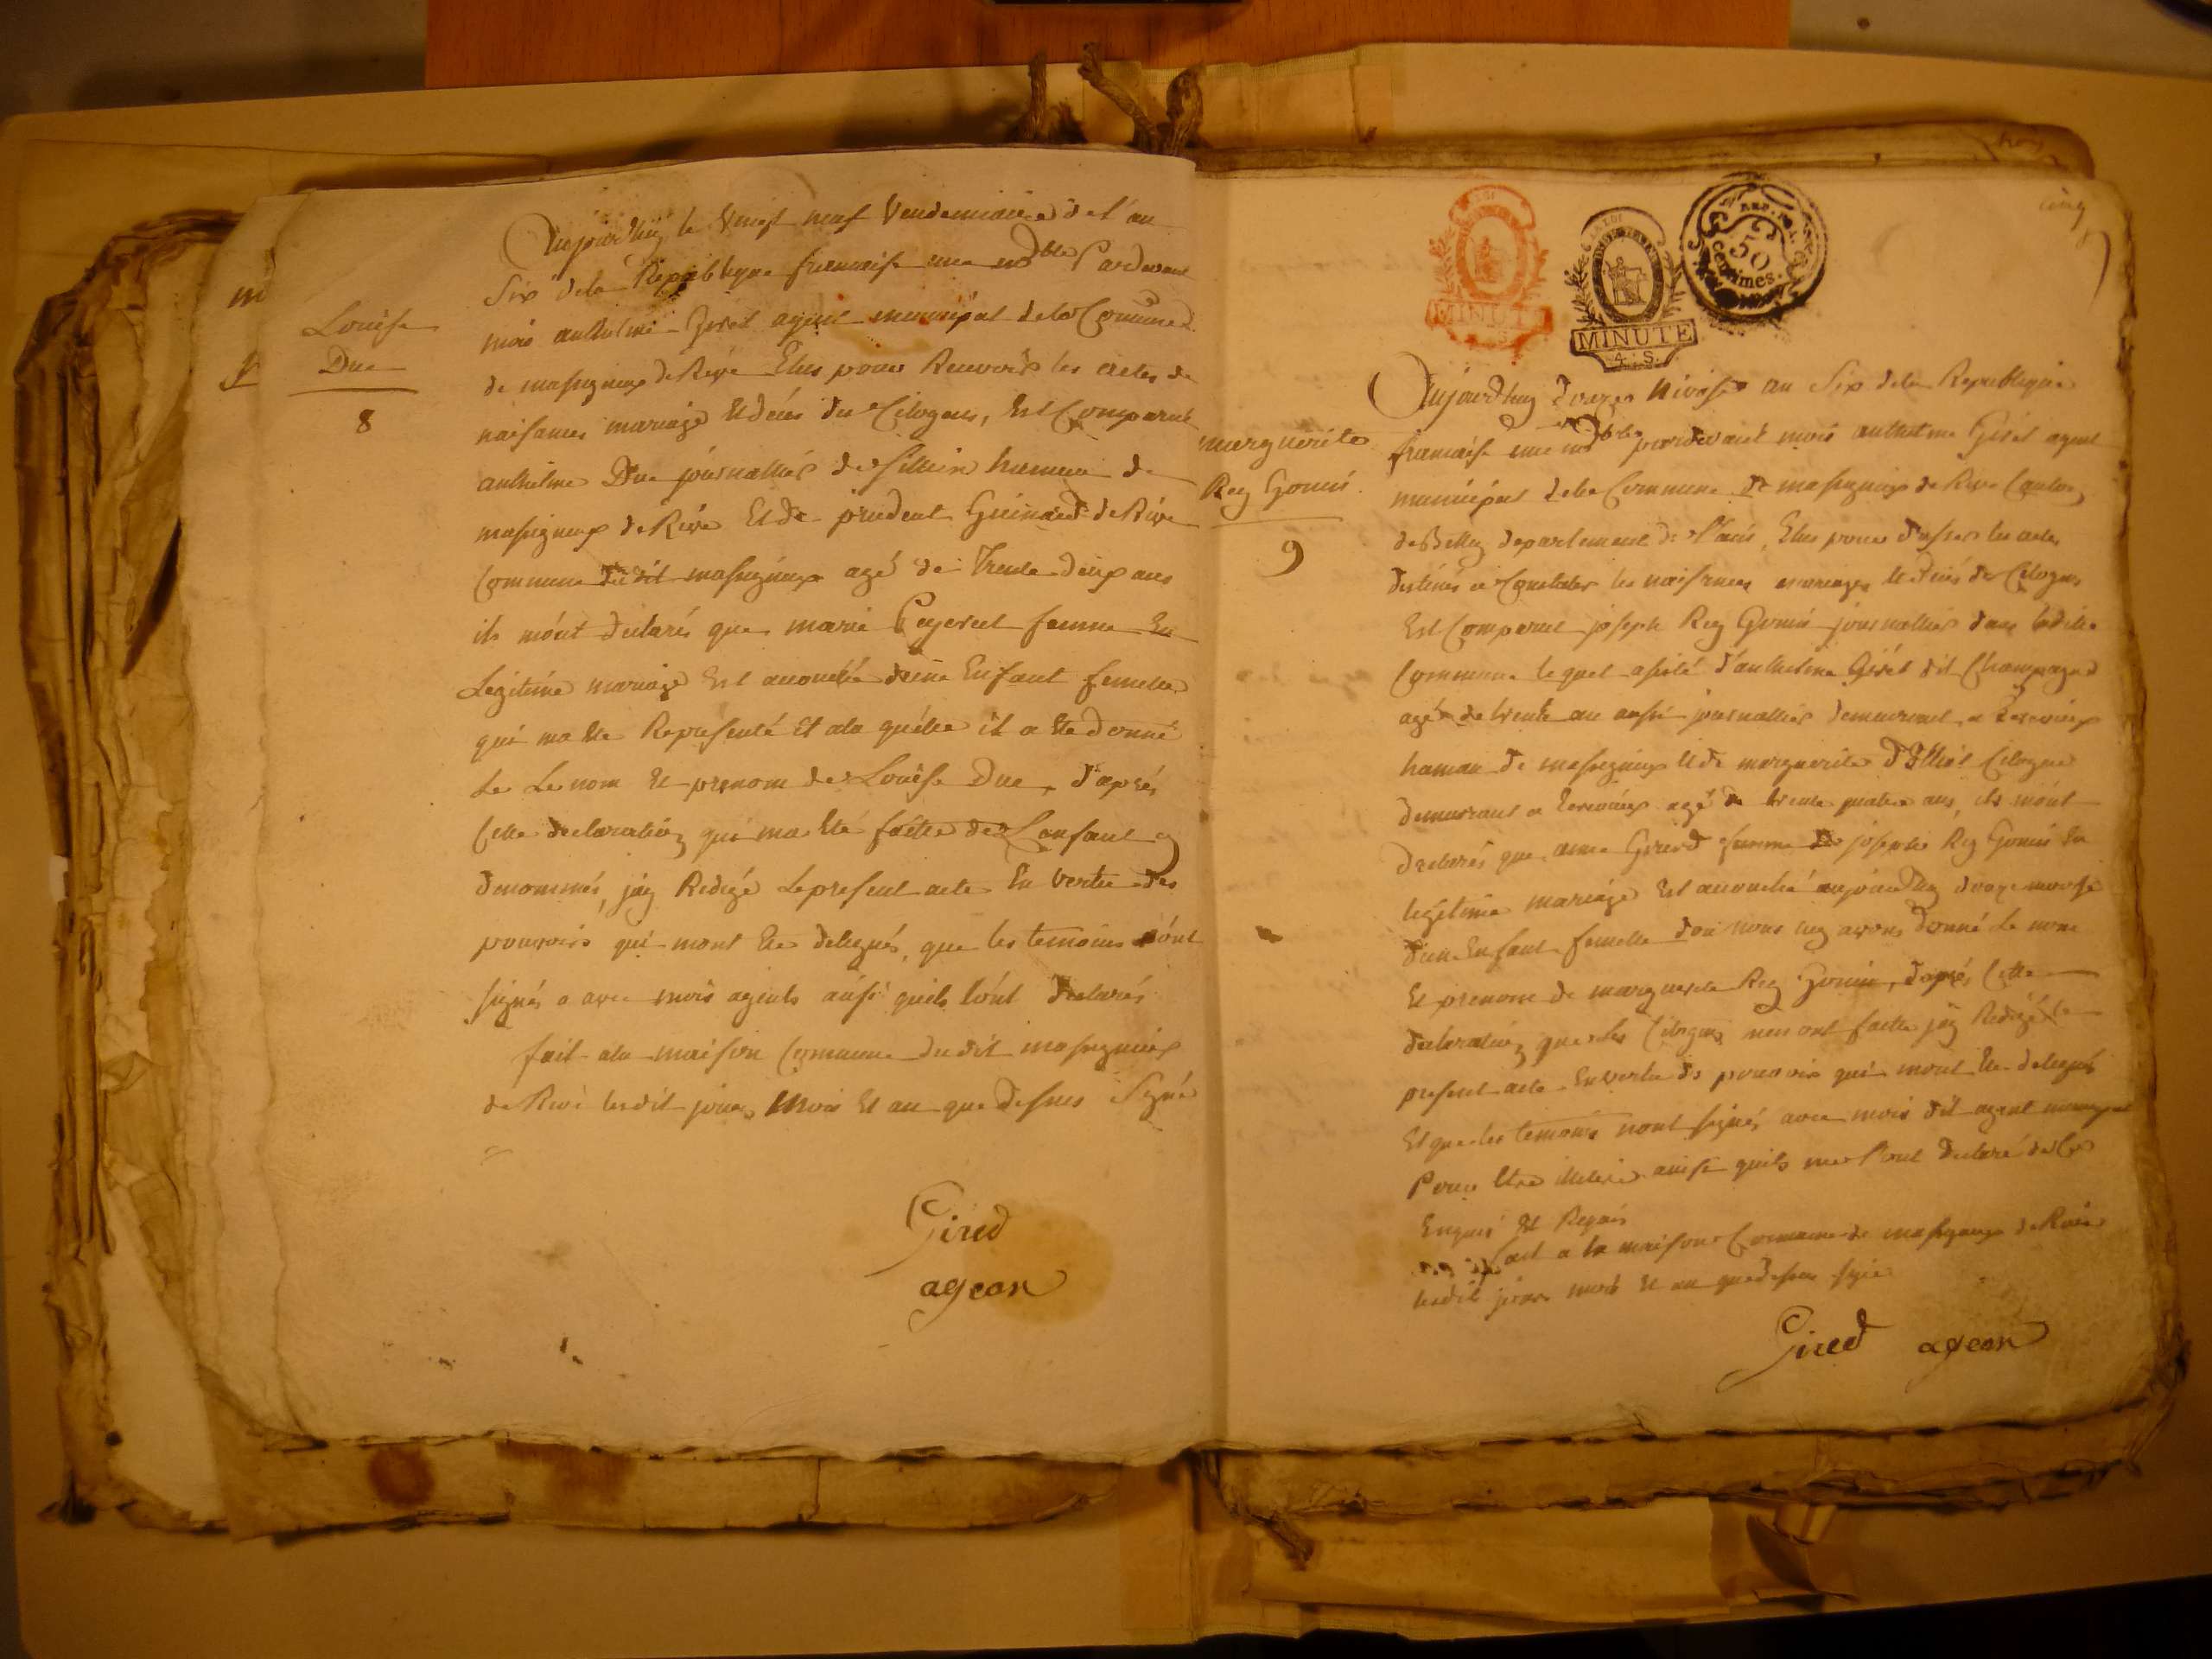 Louise
Duc
8
Aujourdhuy le Vingt neuf Vendemiaire de l'an
Six dela Republique francaise une indble Pardevant
mois anthelme Giret agent municipal dela Comune
de massignieux de Rive Elus pour Recevoir les actes de
naisances mariage et décés des Citoyens, Est Comparut
anthelme Duc journallier de hameau de
massignieux de Rive Et de prudent Guinard de Rive
Commune dudit massignieux agé de Trente deux ans
ils mónt declarés que marie Peyeret femme En
Legitime mariage Est accouchée deune Enfant femelle
qui ma ete Representé Et ala quélle il a ete donné
Le Le nom et prenom de Louise Duc, d'aprés
Cette declaration qui ma été faitte de Lenfant cy
denommés, jay Redigé Lepresent acte En vertue des
pouvoirs qui mont ete delegués, que les temoins nónt
signés a avec mois agents ainsi quils lónt declarés
fait ala maison Commune du dit massignieux
de Rive lesdit jour, Mois Et an que dessus Signé
Gired
agean
cinq
MINUTE
MINUTE
4. S.
50
centimes.
marguerite
Rey Gonin
9
Aujourdhuy douzes Nivose an Six dela Republique
francaise une indble pardevant mois anthelme Giret agent
municipal dela Commune de massignieux de Rive Canton
de Belley departement de l'ain, Elus pour dresser les actes
destinés a Constater les naisances mariages et décés des Citoyens
Est Comparut joseph Rey Gonin journallier dans ladite
Commune lequel asisté d'anthelme Giret dit Champagne
agé de trente an aussi journallier demeurant a
hamau de massignieux et de marguerite Citoyene
demeurant a agé de trente quatre ans, ils mónt
declarés que anne Girerd femme de joseph Rey Gonin En
legitime mariage Est accouchée aujourdhuy douze nivose
dune Enfant femelle dou nous luy avons donné Le nom
Et prenom de marguerite Rey Gonin, daprés Cette
declaration que les Citoyens nous ont faitte jay Redigé le
present acte En vertu des pouvoir qui mont ete delegués
Et que les temoins nont signés avec mois dit agent municipal
Pour Etre ainsi quils me l'ont declaré de Ce
Enquis Et Requis
fait a la maison Commune de massignieux de Rive
lesdit jour mois Et an que dessus signé
Gired agean